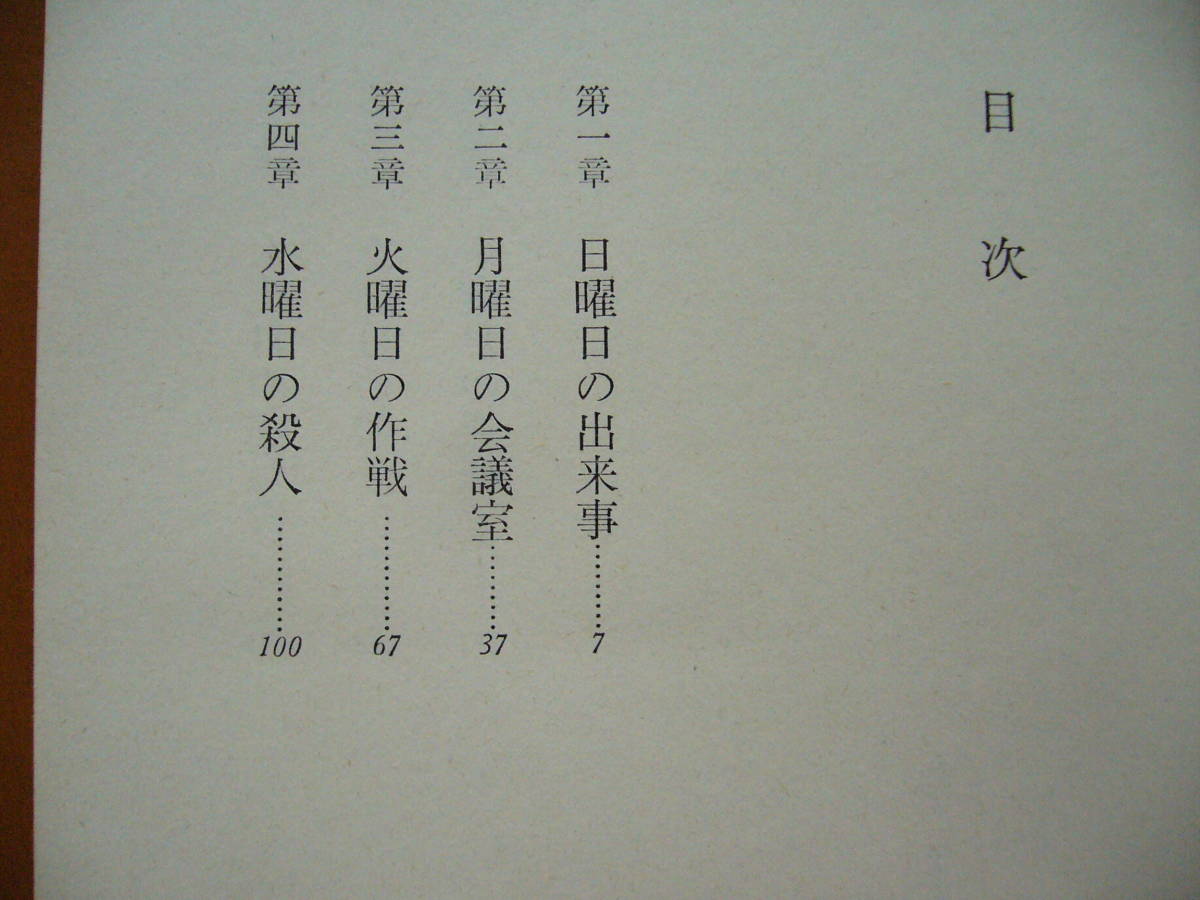 目次
第一章 日曜日の出来事………7
第二章 月曜日の会議室………37
第三章 火曜日の作戦…………67
第四章 水曜日の殺人…………100